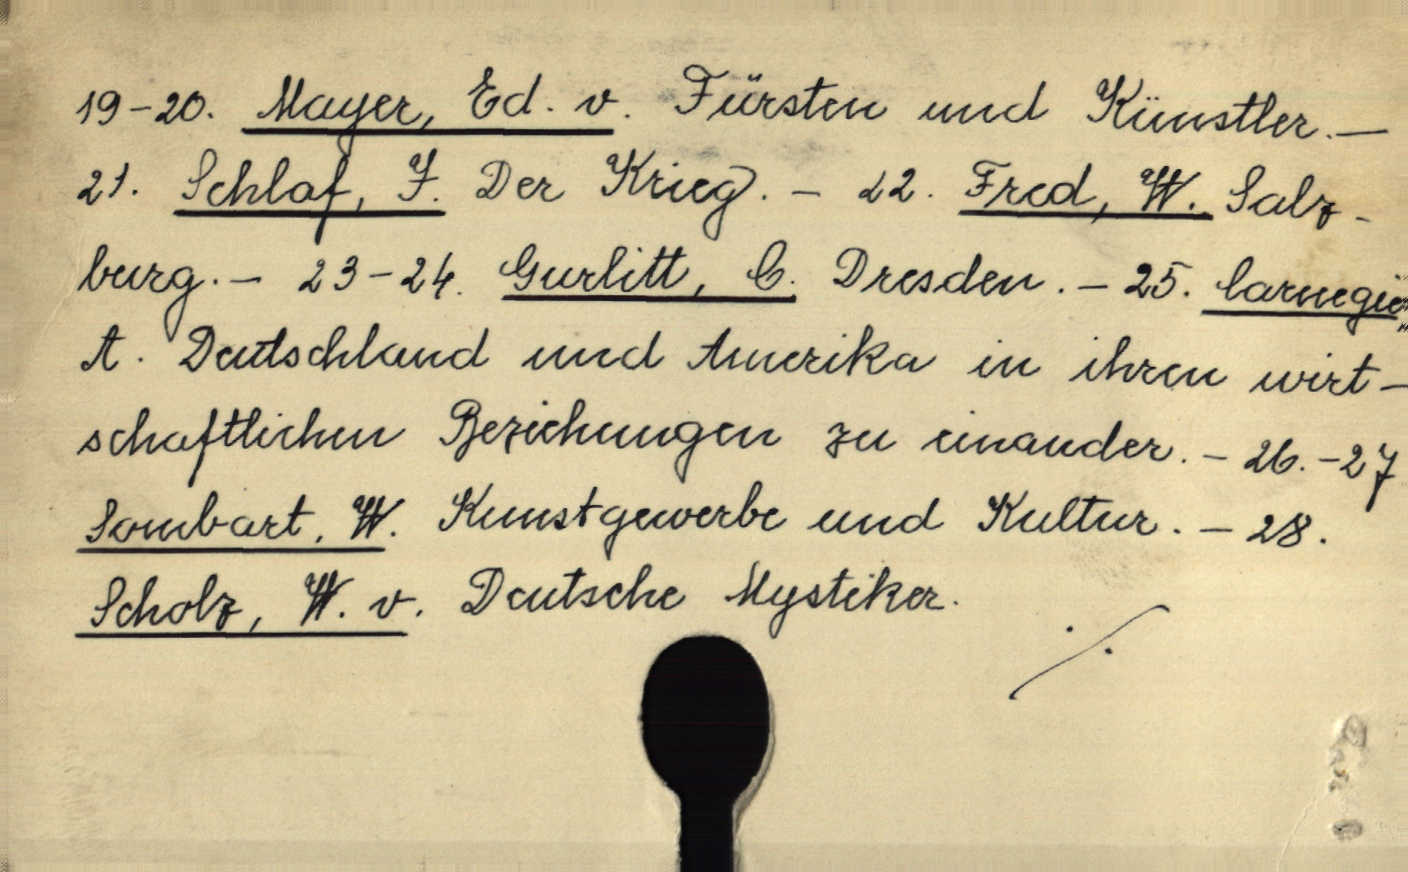 19-20. Mayer, Ed. v. Fürsten und Künstler. —
21. Schlaf, J. Der Krieg. — 22. Fred, W. Salz-
burg. — 23-24. Gurlitt, C. Dresden. — 25. Carnegie,
A. Deutschland und Amerika in ihren wirt-
schaftlichen Beziehungen zu einander. — 26.-27
Sombart, W. Kunstgewerbe und Kultur. — 28.
Scholz, W. v. Deutsche Mystiker.
./.